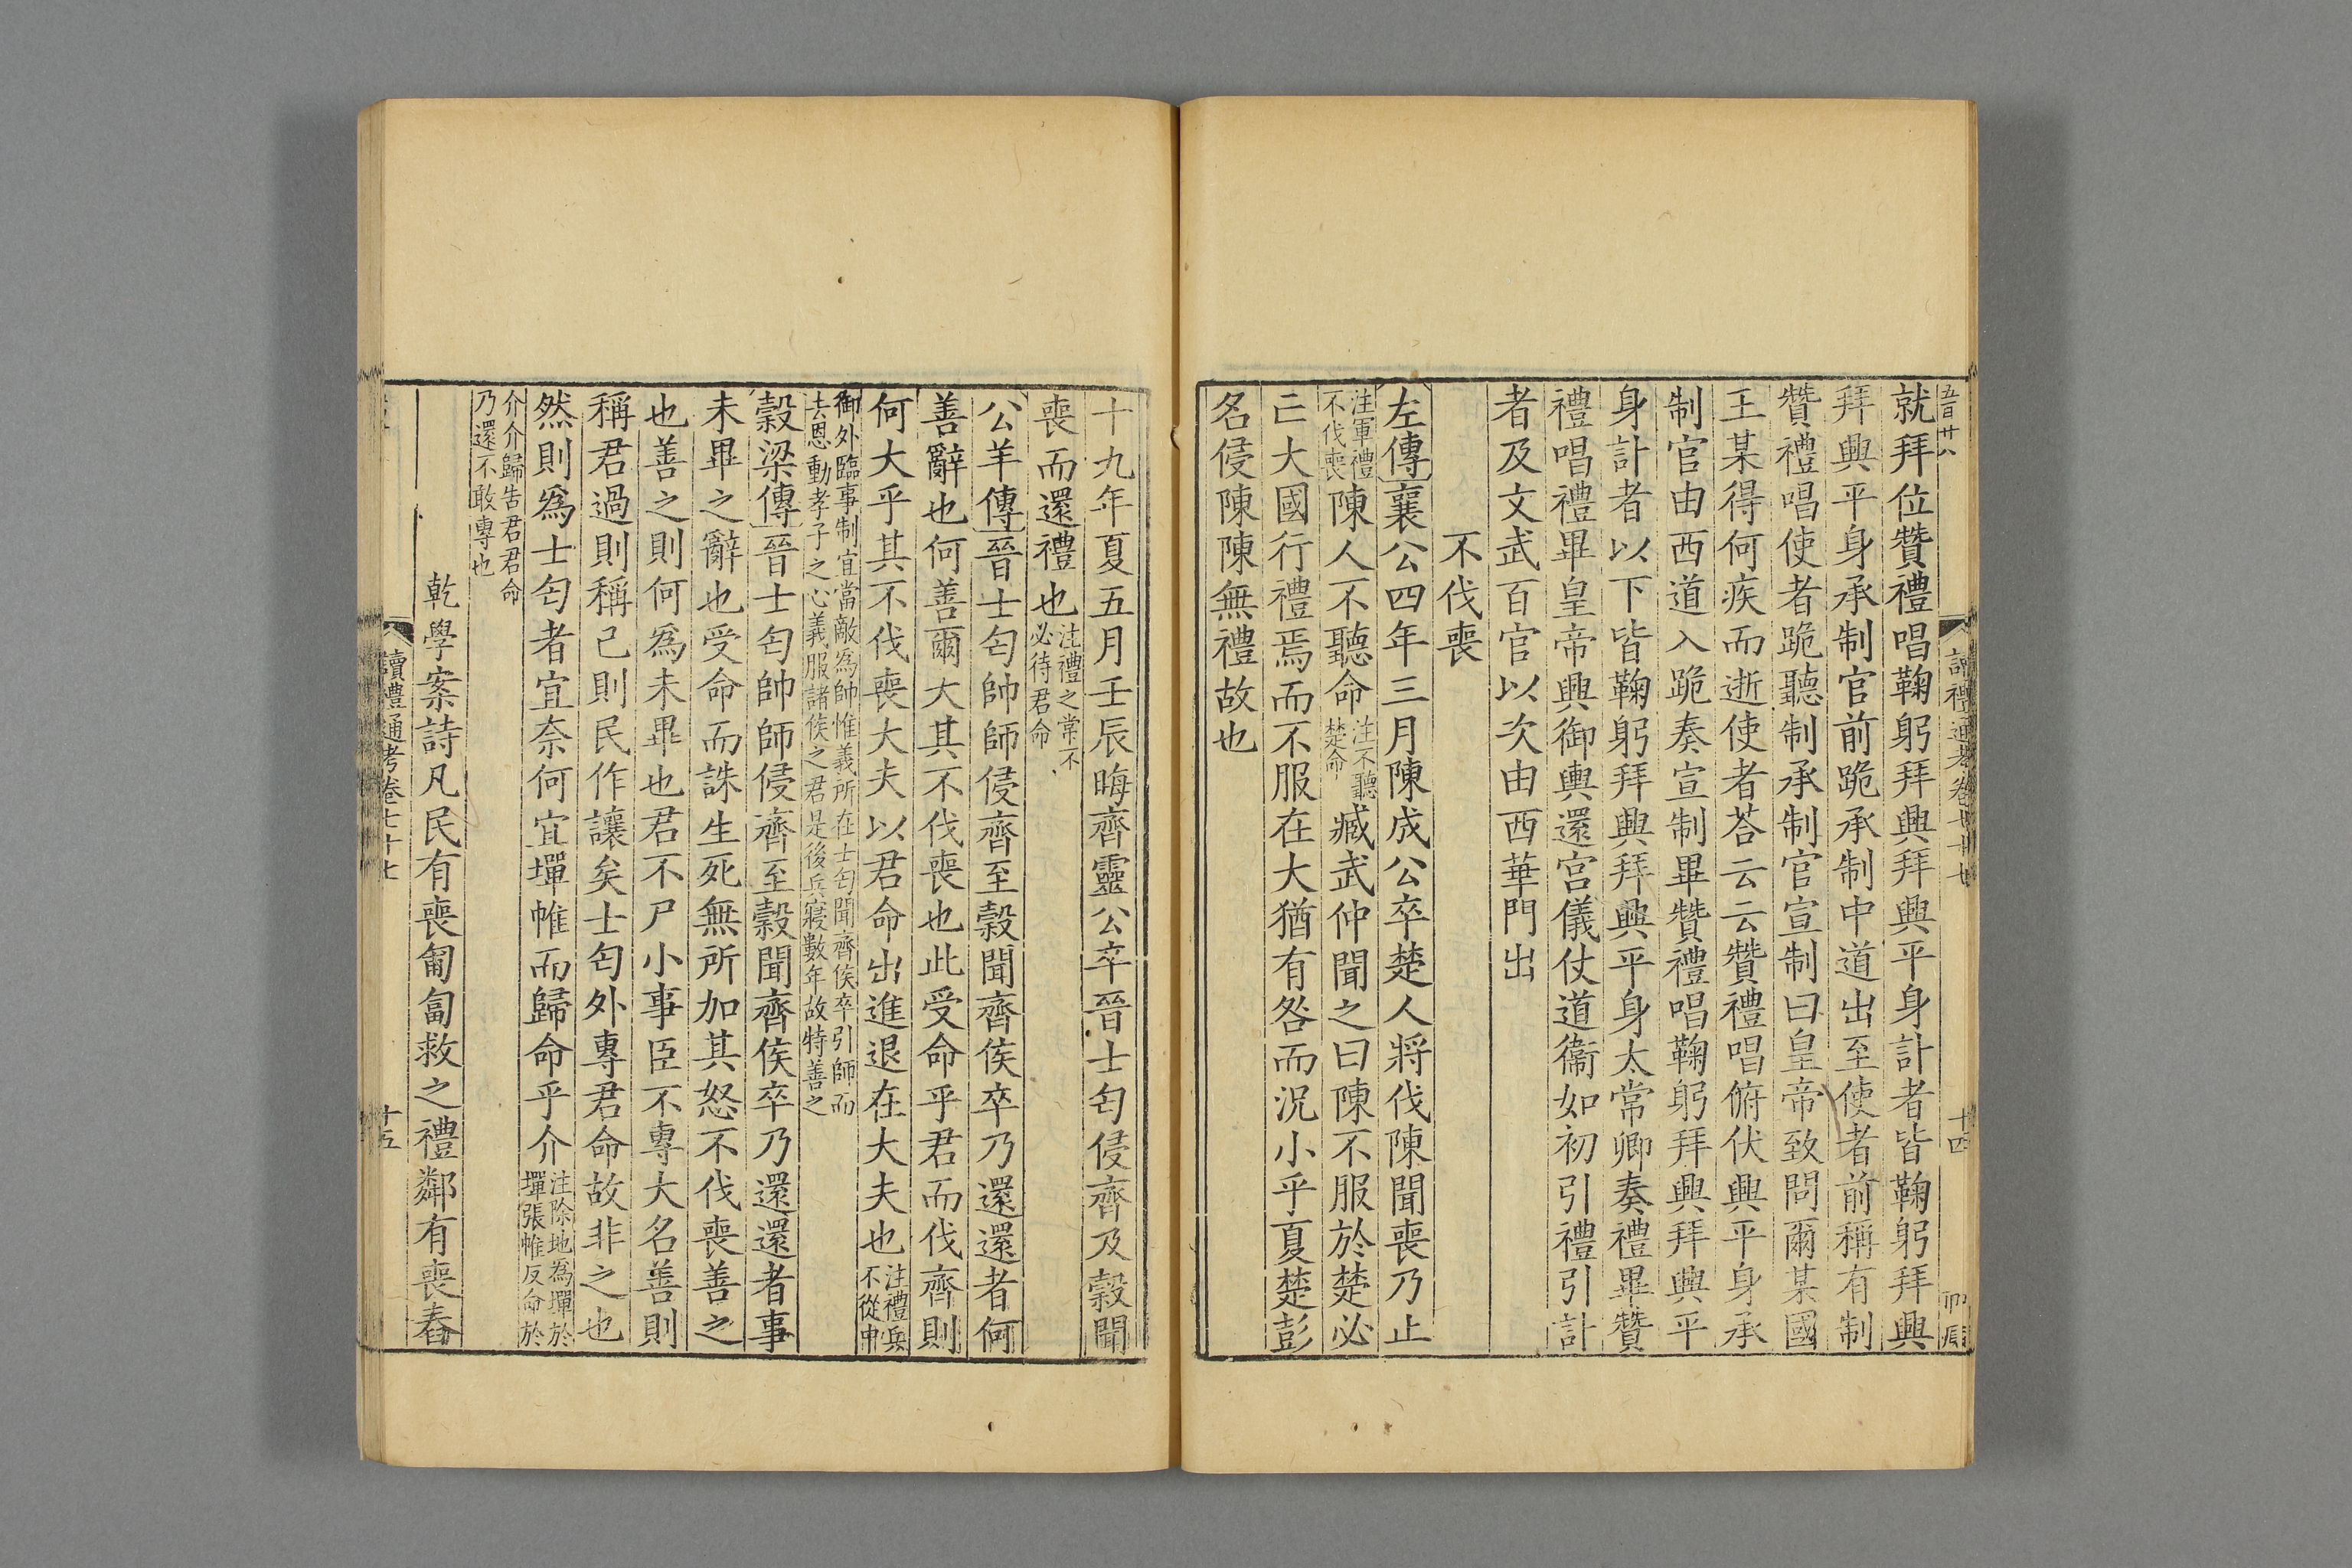 五百廿八
讀禮通考卷七十七
十四
就拜位贊禮唱鞠躬拜興拜興平身計者皆鞠躬拜興
拜興平身承制官前跪承制中道出至使者前稱有制
贊禮唱使者跪聽制承制官宣制曰皇帝致問爾某國
王某得何疾而逝使者荅云云贊禮唱俯伏興平身承
制官由西道入跪奏宣制畢贊禮唱鞠躬拜興拜興平
身計者以下皆鞠躬拜興拜興平身太常卿奏禮畢贊
禮唱禮畢皇帝興御輿還宮儀仗道衞如初引禮引計
者及文武百官以次由西華門出
不伐喪
左傳襄公四年三月陳成公卒楚人將伐陳聞喪乃止
注軍禮不伐喪陳人不聽命注不聽楚命臧武仲聞之曰陳不服於楚必
亡大國行禮焉而不服在大猶有咎而況小乎夏楚彭
名侵陳陳無禮故也
十九年夏五月壬辰晦齊靈公卒晉士匄侵齊及穀聞
喪而還禮也注禮之常不必待君命
公羊傳晉士匄帥師侵齊至穀聞齊侯卒乃還還者何
善辭也何善爾大其不伐喪也此受命乎君而伐齊則
何大乎其不伐喪大夫以君命出進退在大夫也注禮兵不從中
御外臨事制宜當敵爲帥惟義所在士匄聞齊侯卒引師而
去恩動孝子之心義服諸侯之君是後兵寢數年故特善之
穀梁傳晉士匄帥師侵齊至穀聞齊侯卒乃還還者事
未畢之辭也受命而誅生死無所加其怒不伐喪善之
也善之則何爲未畢也君不尸小事臣不專大名善則
稱君過則稱己則民作讓矣士匄外專君命故非之也
然則爲士匄者宜奈何宜墠帷而歸命乎介注除地為墠於墠張帷反命於
介介歸告君君命
乃還不敢專也
乾學案詩凡民有喪匍匐救之禮鄰有喪舂
讀禮通考卷七十七
十五